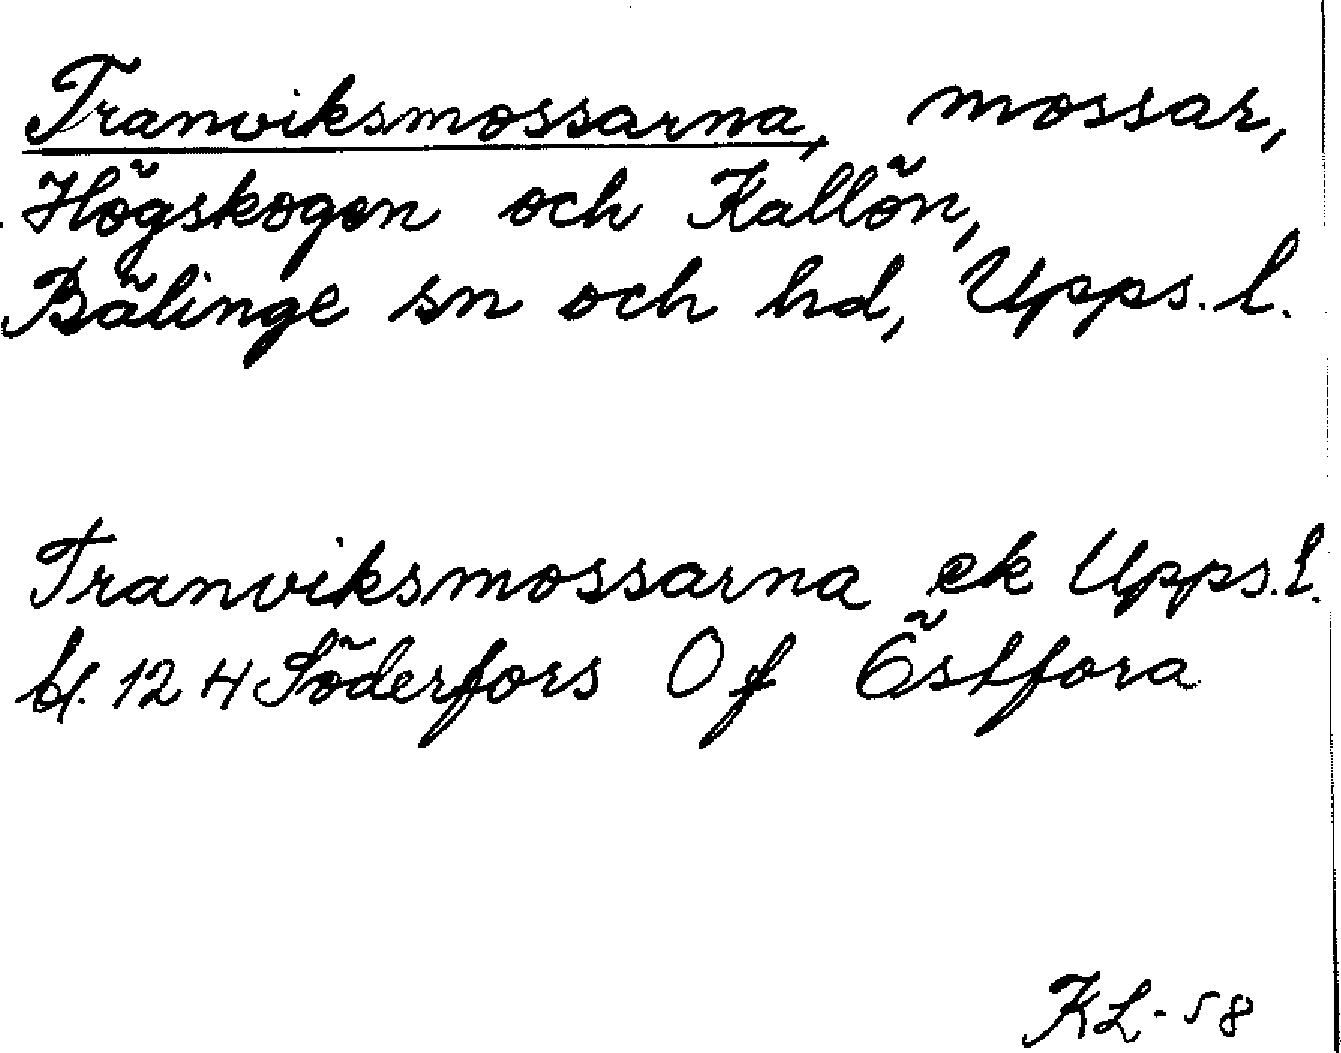 Tranviksmossarna, mossar,
Högskogen och Kallön,
Bälinge sn och hd, Upps. l.
Tranviksmossarna ek Upps. l.
bl. 124 Söderfors Of Östfora
KL-58